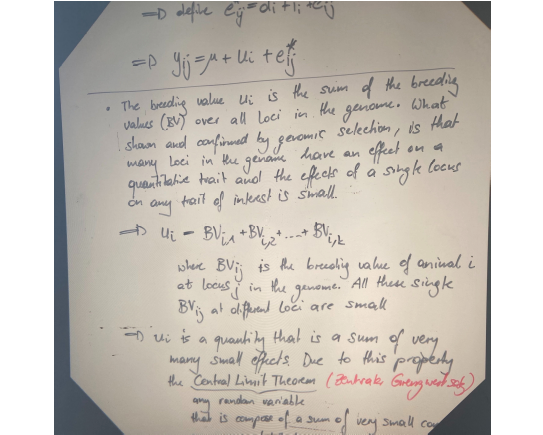 => define e*ij = di + ii + eij
=> yij = μ + ui + e*ij
• The breeding value ui is the sum of the breeding
values (BV) over all loci in the genome. What
shown and confirmed by genomic selection, is that
many loci in the genome have an effect on a
quantitative trait and the effects of a single locus
on any trait of interest is small.
=> ui = BVi,1 + BVi,2 + .... + BVi,k
where BVij is the breeding value of animal i
at locus j in the genome. All these single
BVij at different loci are small
=> ui is a quantity that is a sum of very
many small effects. Due to this property
the Central Limit Theorem (Zentraler Grenzwertsatz)
any random variable
that is compose of a sum of very small